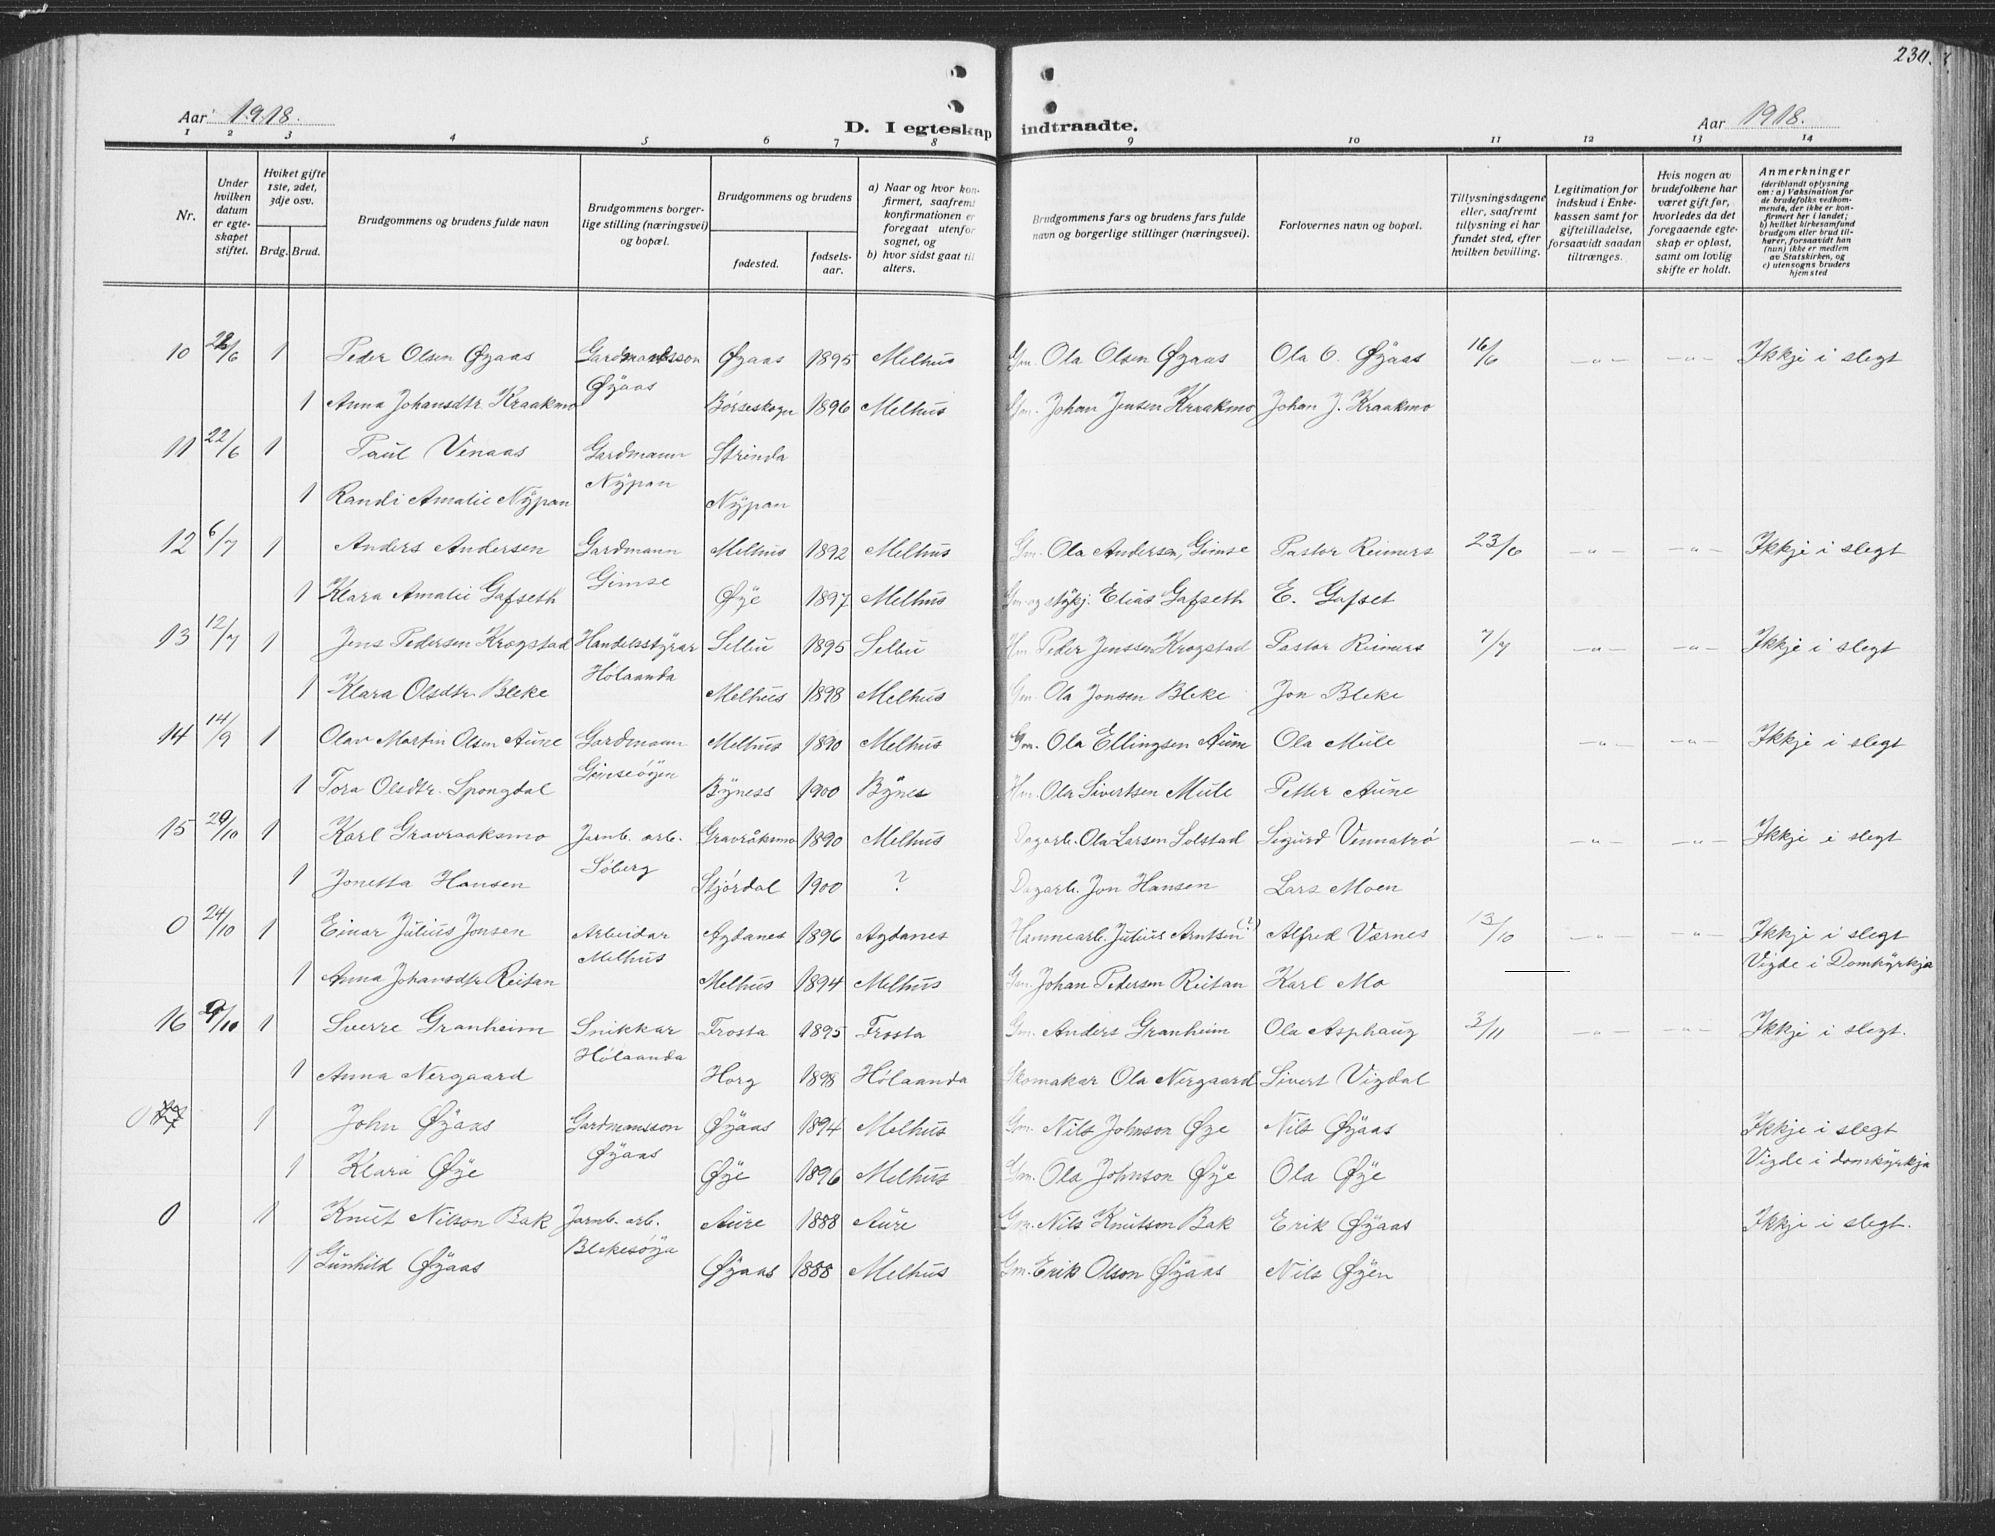 230.
Aar 1918. D. I egteskap indtraadte. Aar 1918.
1 2 3 4 5 6 7 8 9 10 11 12 13 14
Nr.
Under hvilken datum er egteskapet stiftet.
Hviket gifte 1ste, 2det, 3dje osv.
Brdg. Brud.
Brudgommens og brudens fulde navn
Brudgommens borgerlige stilling (næringsvei) og bopæl.
Brudgommens og brudens
fødested. fødselsaar.
a) Naar og hvor konfirmert, saafremt konfirmationen er foregaat utenfor sognet, og
b) hvor sidst gaat til alters.
Brudgommens fars og brudens fars fulde navn og borgerlige stillinger (næringsvei).
Forlovernes navn og bopæl.
Tillysningsdagene eller, saafremt tillysning ei har fundet sted, efter hvilken bevilling.
Legitimation for indskud i Enkekassen samt for giftetilladelse, forsaavidt saadan tiltrænges.
Hvis nogen av brudefolkene har været gift før, hvorledes da det foregaaende egteskap er opløst, samt om lovlig skifte er holdt.
Anmerkninger (deriblandt oplysning om: a) Vaksination for de brudefolks vedkommende, der ikke er konfirmert her i landet; b) hvilket kirkesamfund brudgom eller brud tilhører, forsaavidt han (hun) ikke er medlem av Statskirken, og c) utensogns bruders hjemsted
10 22/6 1 Peder Olsen Øyaas Gardmandsson Øyaas 1895 Melhus Gm. Ola Olsen Øyaas Ola O. Øyaas 16/6 -"- -"- Ikkje i slegt
Øyaas
1 Anna Johansdtr. Kraakmo Børseskogn 1896 Melhus Gm. Johan Jensen Kraakmo Johan J. Kraakmo
11 22/6 1 Paul Vinaas Gardmann Strinda
Nÿpan
1 Randi Amalie Nÿpan Nÿpan
12 6/7 1 Anders Andersen Gardmann Melhus 1892 Melhus Gm. Ola Andersen, Gimse Pastor Reimers 23/6 -"- -"- Ikkje i slegt
Gimse
1 Klara Amalie Gafseth Øÿe 1897 Melhus Gm. og stÿkj. Elias Gafseth E. Gafset
13 12/7 1 Jens Pedersen Krogstad Handelsstÿrar Selbu 1895 Selbu Hm Peder Jenssen Krogstad Pastor Reimers 7/7 -"- -"- Ikkje i slegt
Hølaanda
1 Klara Olsdtr. Bleke Melhus 1898 Melhus Gm. Ola Jonsen Bleke Jon Bleke
14 14/9 1 Olav Martin Olsen Aune Gardmann Melhus 1890 Melhus Gm. Ola Ellingsen Aune Ola Mule -"- -"- Ikkje i slegt
Gimseøÿen
1 Tora Olsdtr. Spongdal Bÿness 1900 Bÿnes Hm. Ola Sivertsen Mule Petter Aune
15 29/10 1 Karl Gravraaksmo Jarnb. arb. Gravråksmo 1890 Melhus Dagarb. Ola Larsen Solstad Sigurd Vennatrø -"- -"- Ikkje i slegt
Søberg
1 Jonetta Hansen Stjørdal 1900 ? Dagarb. Jon Hansen Lars Moen
0 24/10 1 Einar Julius Jonsen Arbeidar Agdanes 1896 Agdanes Havnearb. Julius Arntsen (?) Alfred Værnes 13/10 -"- -"- Ikkje i slegt
Melhus Vigde i Domkÿrkja
1 Anna Johansdtr Reitan Melhus 1894 Melhus Gm. Johan Pedersen Reitan Karl Mo
16 /10 1 Sverre Granheim Snikkar Frosta 1895 Frosta Gm. Anders Granheim Ola Asphaug 3/11 -"- -"- Ikkje i slegt.
Hølaanda
1 Anna Nergaard Horg 1898 Hølaanda Skomakar Ola Nergaard Sivert Vigdal
0 1 John Øÿaas Gardmansson Øÿaas 1894 Melhus Gm. Nils Johnson Øÿe Nils Øÿaas Ikkje i slegt
Øÿaas Vigde i domkÿrkja
1 Klara Øÿe Øÿe 1896 Melhus Gm. Ola Johnson Øÿe Ola Øÿe
0 1 Knut Nilson Bak Jarnb. arb. Aure 1888 Aure Gm. Nils Knutson Bak Erik Øÿaas Ikkje i slegt.
Blekesøÿa
1 Gunhild Øÿaas Øÿaas 1888 Melhus Gm. Erik Olson Øÿaas Nils Øÿen